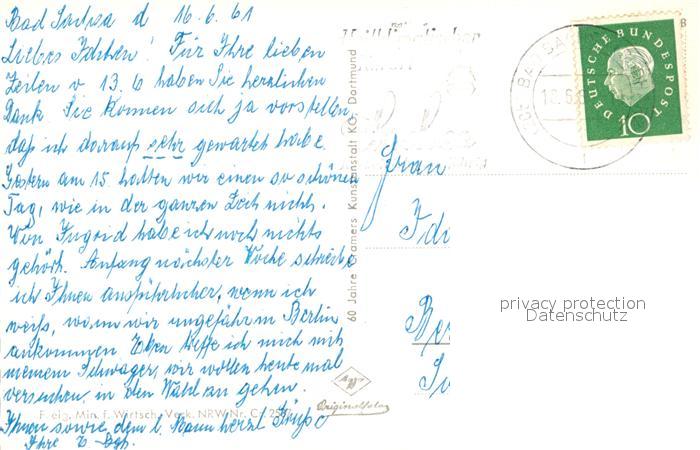 Bad Sachsa d 16.6.61
Liebes Idchen! Für Ihre lieben
Zeilen v 13.6 haben Sie herzlichen
Dank Sie können sich ja vorstellen,
daß ich darauf sehr gewartet habe.
Gestern am 15. hatten wir einen so schönen
Tag, wie in der ganzen Zeit nicht.
Von Ingrid habe ich noch nichts
gehört. Anfang nächster Woche schreibe
ich Ihnen ausführlicher, wenn ich
weiß, wann wir ungefähr in Berlin
ankommen Eben treffe ich mich mit
meinem Schwager, wir wollen heute mal
versuchen, in den Wald zu gehen.
Ihnen sowie dem l. Mann herzl Grüße
Ihre
F. eig. Min. F. Wirtsch. Verk. NRW Nr. C
60 Jahre Cramers Kunstanstalt KG, Dortmund
Originalfoto
Frau
DEUTSCHE BUNDESPOST
10
BAD SAC
privacy protection
Datenschutz